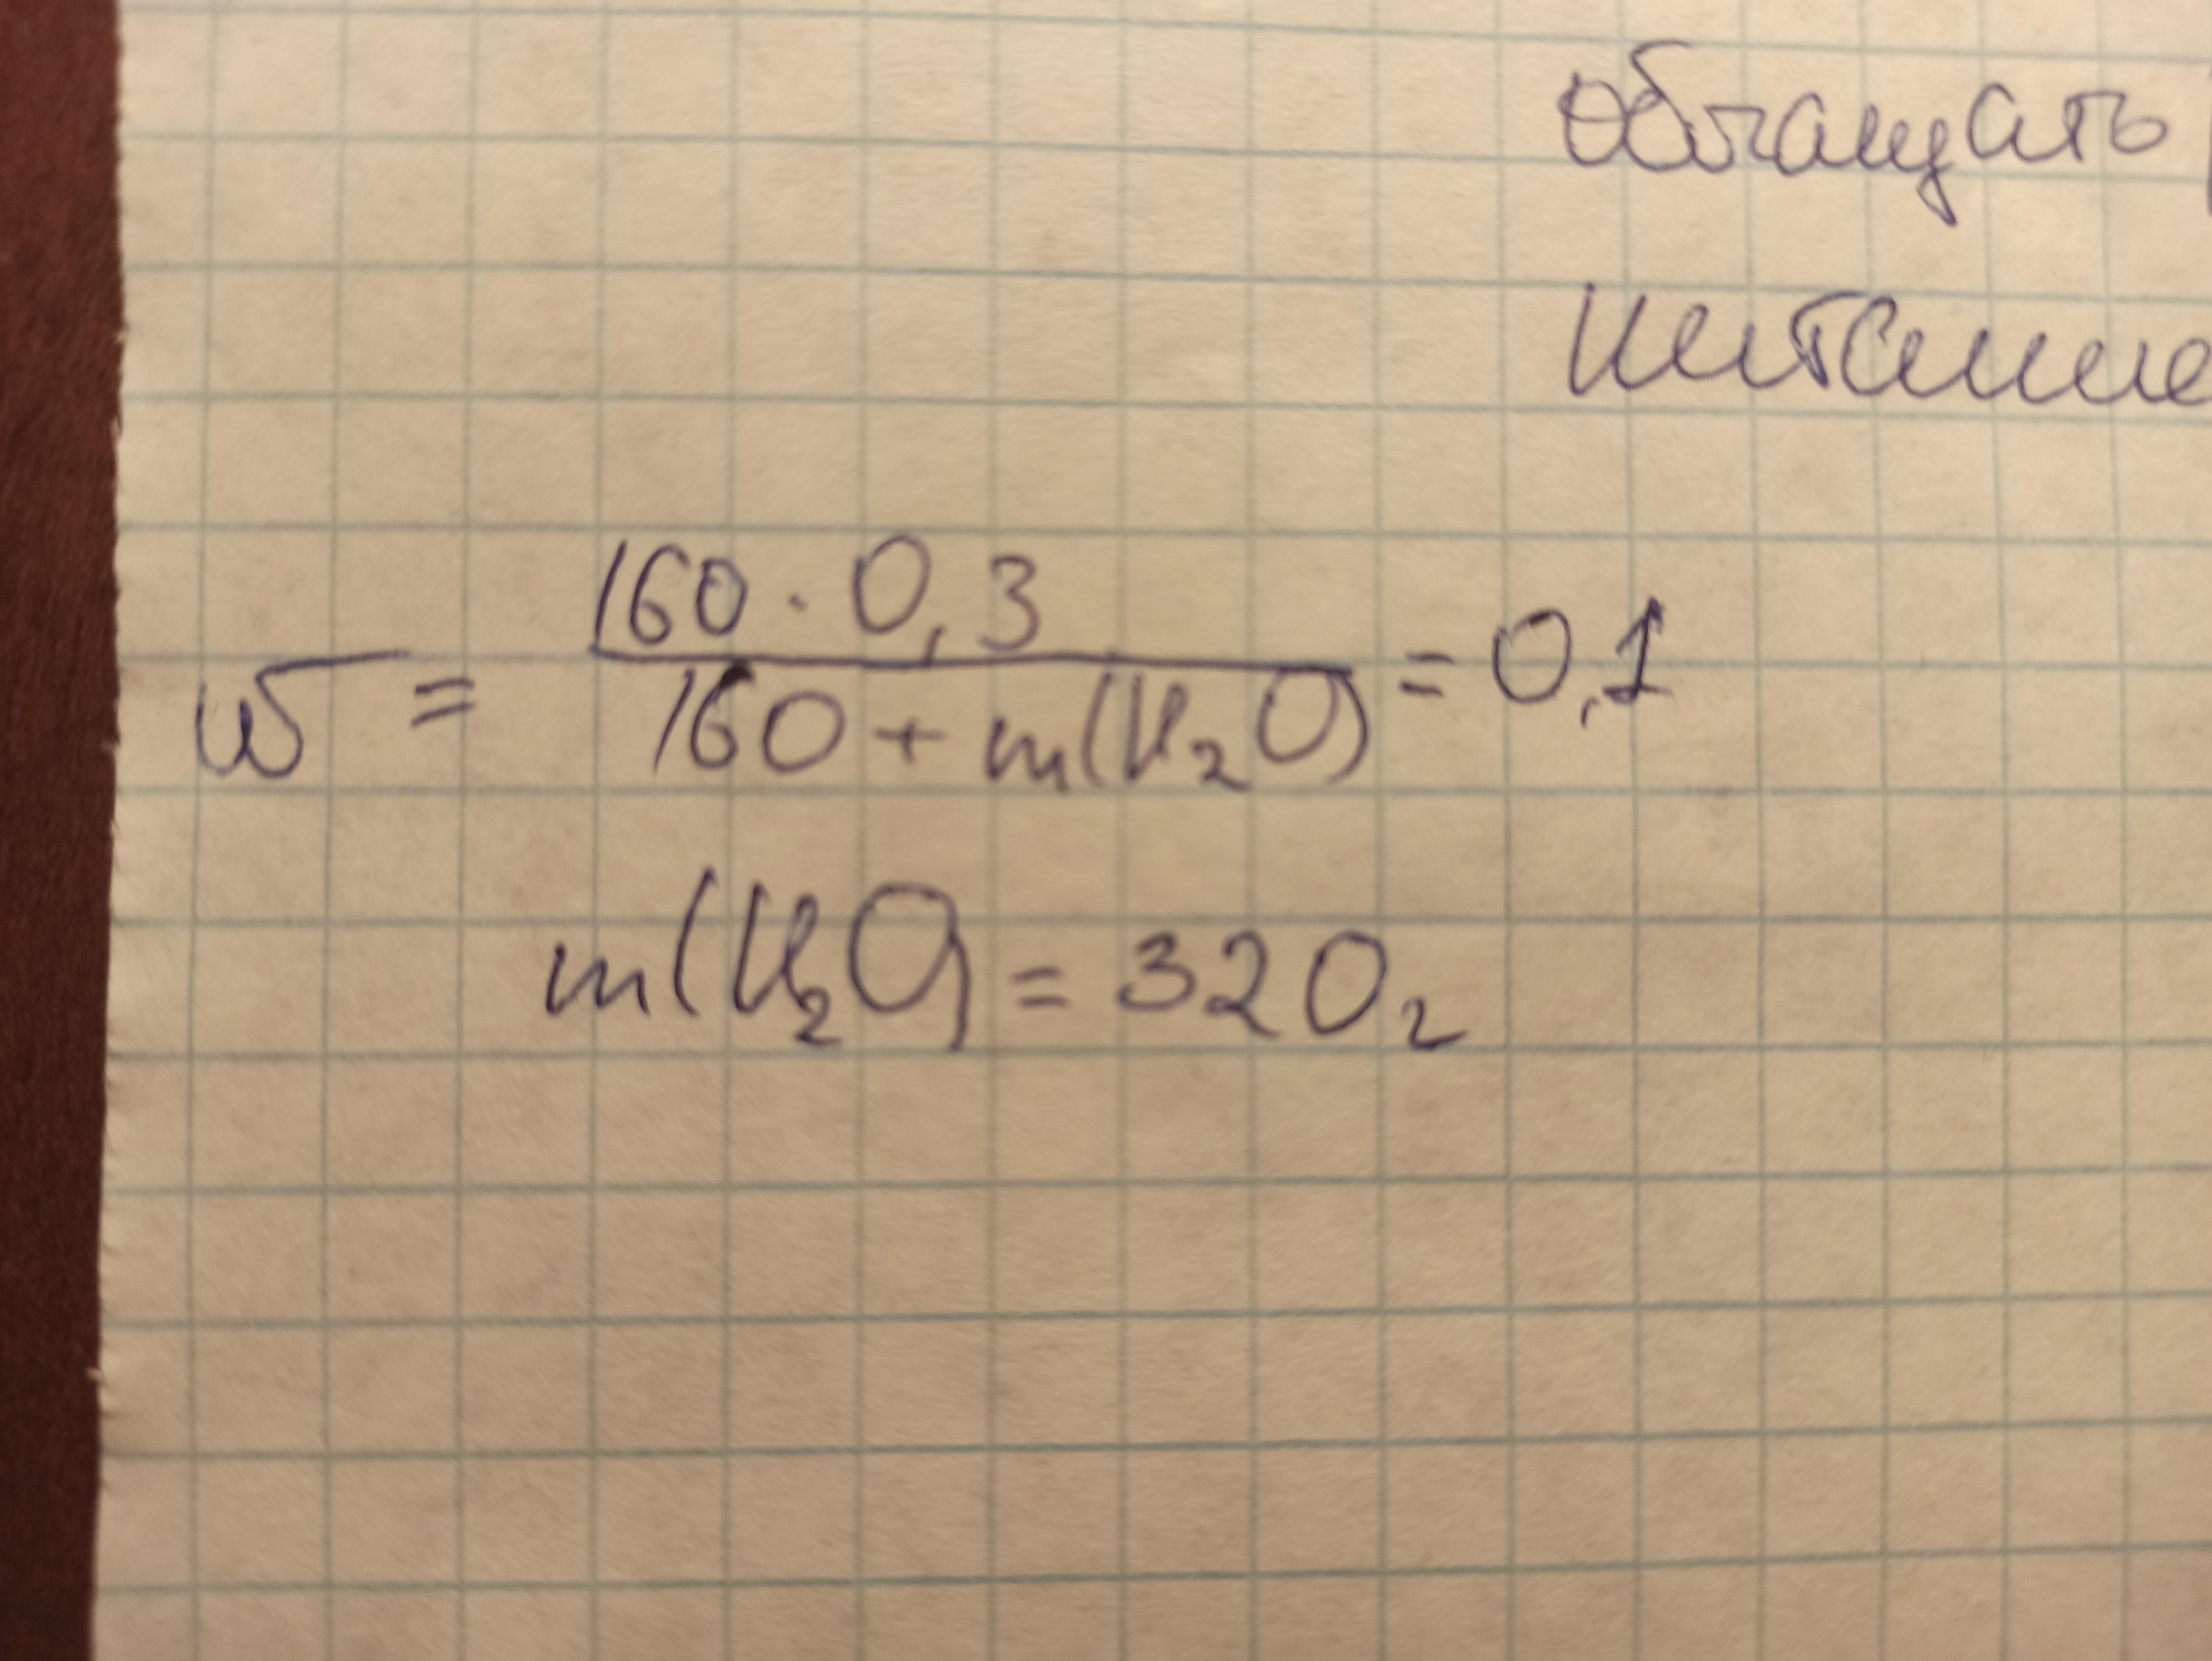 обогащать
питание
w = 160 · 0,3 / 160 + m(H₂O) = 0,1
m(H₂O) = 320 г